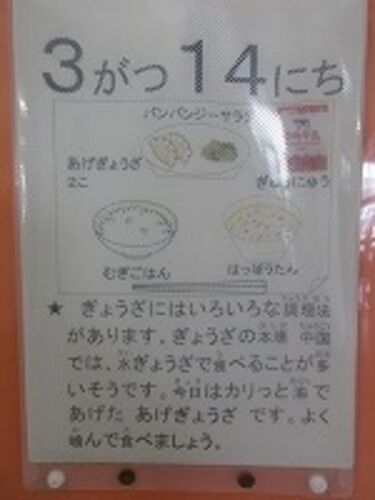 3がつ14にち
バンバンジーサラダ
あげぎょうざ
2こ
ぎゅうにゅう
むぎごはん
はっぽうたん
★ ぎょうざにはいろいろな調理法
があります。ぎょうざの本場 中国
では、水ぎょうざで食べることが多
いそうです。今日はカリっと油で
あげた あげぎょうざ です。よく
噛んで食べましょう。